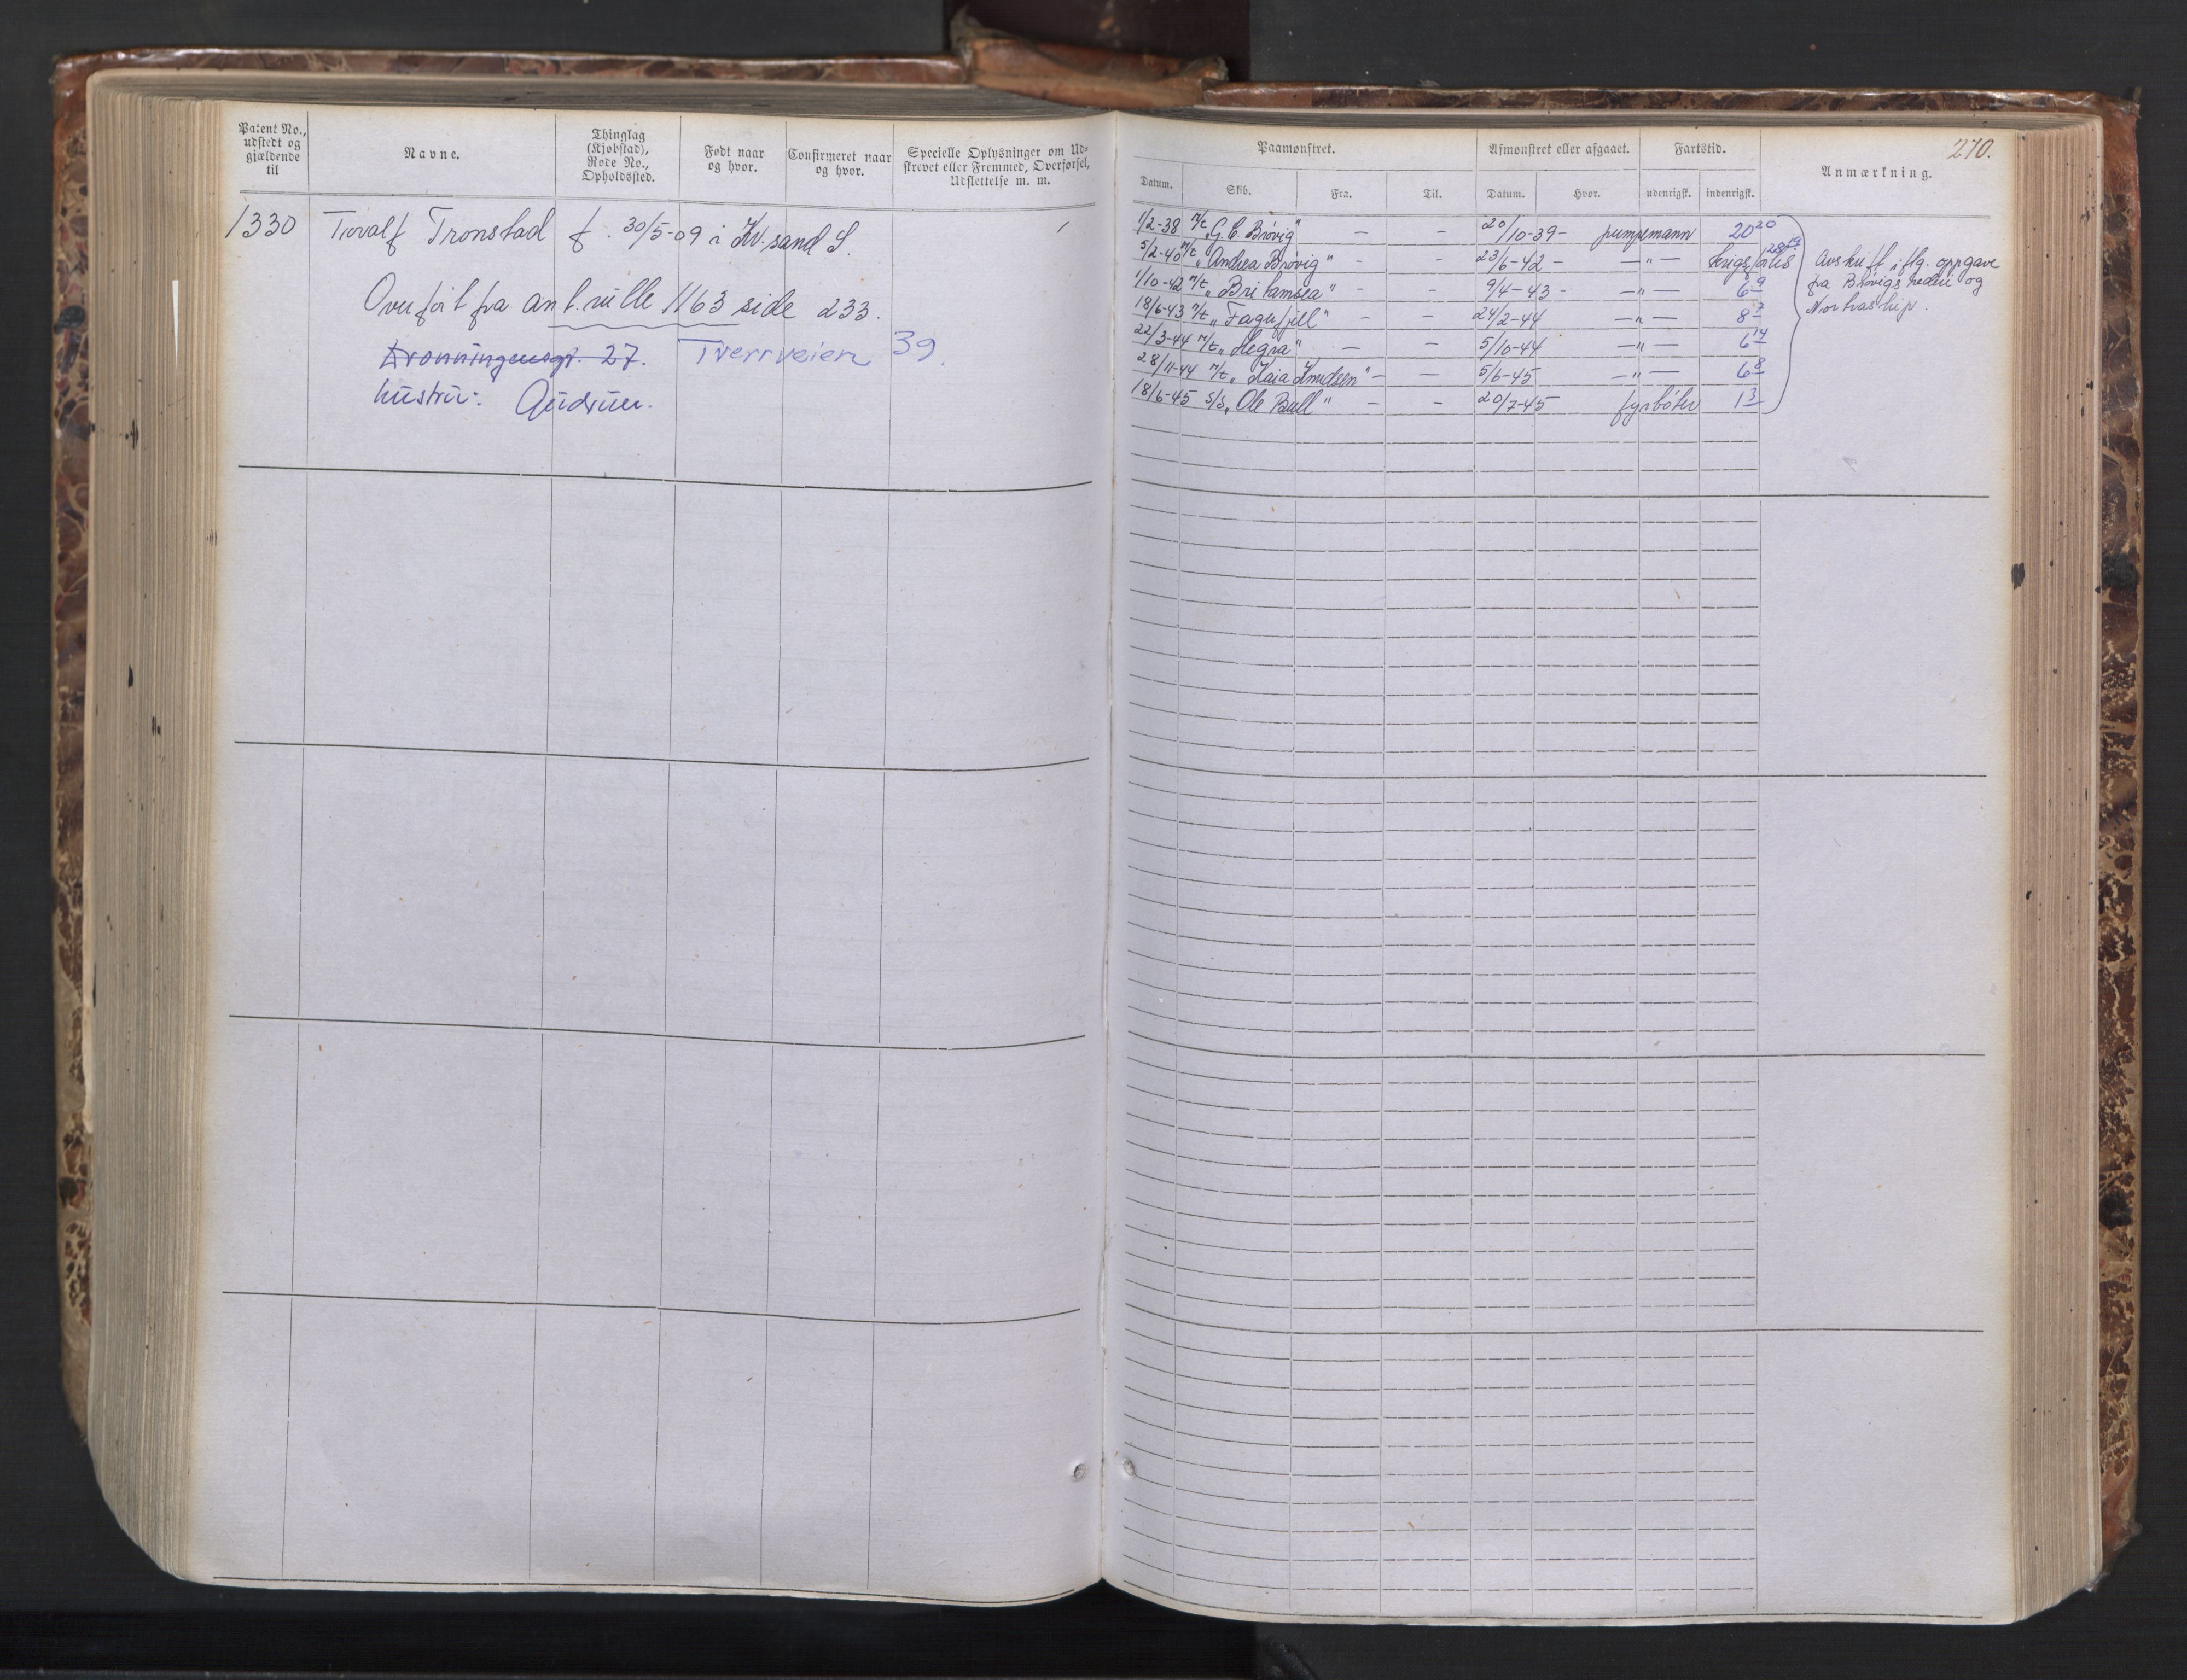 Patent No., udstedt og gjældende til
Navne.
Thinglag (Kjøbstad), Rode No., Opholdssted.
Født naar og hvor.
Confirmeret naar og hvor.
Specielle Oplysninger om Udskrevet eller Fremmed, Overførsel, Udslettelse m. m.
1330 Torolf Tronstad f. 30/5-09 i Kr.sand S.
Overført fra ant. rulle 1163 side 233.
Dronningensgt. 27. Tverrveien 39.
hustru: Gudrun.
270.
Paamønstret.
Afmønstret eller afgaaet.
Fartstid.
Anmærkning.
Datum. Skib. Fra. Til. Datum. Hvor. udenrigsk. indenrigsk.
1/2-38 M/t „G. C. Brøvig" - - 20/10-39 - pumpemann 20 20
5/2-40 M/t „Andrea Brøvig" - - 23/6-42 - -"- krigsforlis 28 19
1/10-42 M/t „Britamsea" - - 9/4-43 - -"- 6 9
18/6-43 M/t „Fagerfjell" - - 24/2-44 -"- 8 7
22/3-44 M/t „Hegra" - - 5/10-44 -"- 6 14
28/11-44 M/t „Kaia Knudsen" - - 5/6-45 -"- 6 8
18/6-45 S/S „Ole Bull" - - 20/7-45 fyrbøter 1 3
Avskrift iflg. oppgave
fra Brøvigs rederi og
Nortraship.